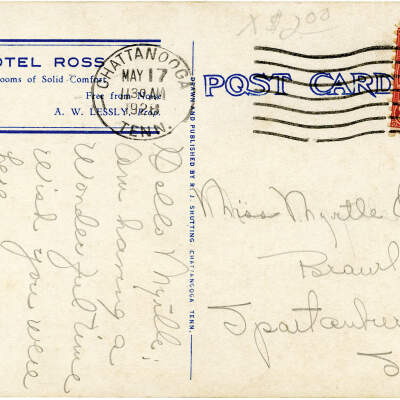 X $2.00
OTEL ROSS
ooms of Solid Comfort
Free from Noise
A. W. LESSLY, Prop.
CHATTANOOGA
MAY 17
1130 AM
1928
TENN.
POST CARD
DRAWN AND PUBLISHED BY R. J. SHUTTING CHATTANOOGA TENN.
Hello Myrtle:
Am having a
Wonderful time
Wish you were
here
Miss Myrtle
Brawl
Spartanbur